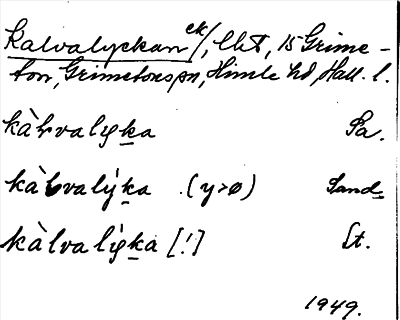 Kalvalyckan ck/, lht, 15 Grime-
ton, Grimetons sn, Himle hd, Hall. l.
kàlvalyka Pa.
kàlvalýka (y>ø) Sand.
kàlvalýka [!] St.
1949.